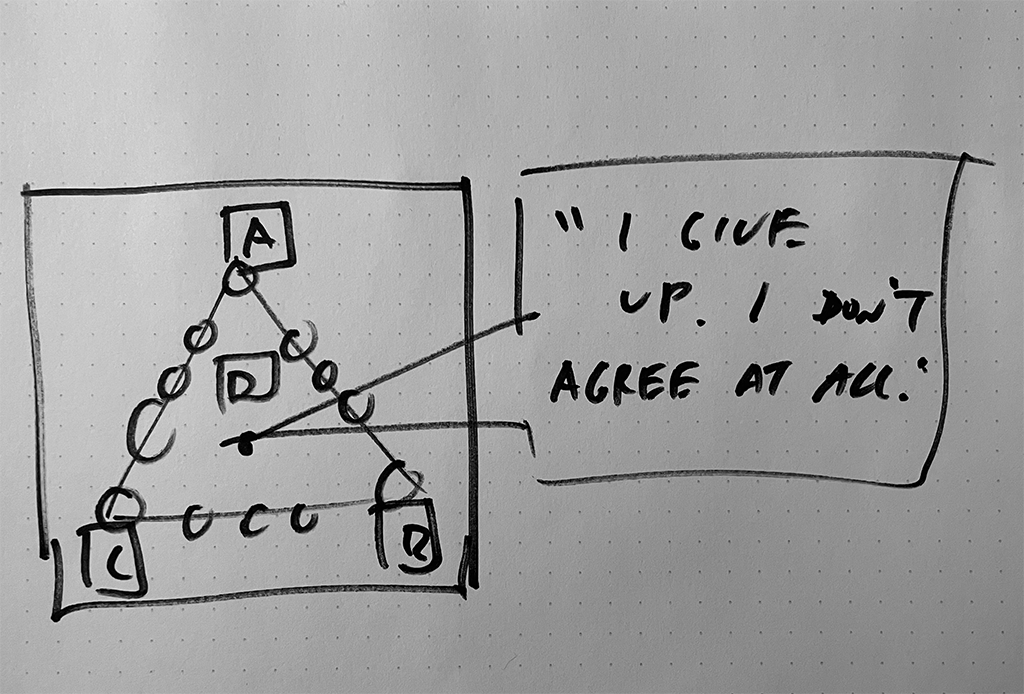 A
D
C
B
" I GIVE
UP. I DON'T
AGREE AT ALL."